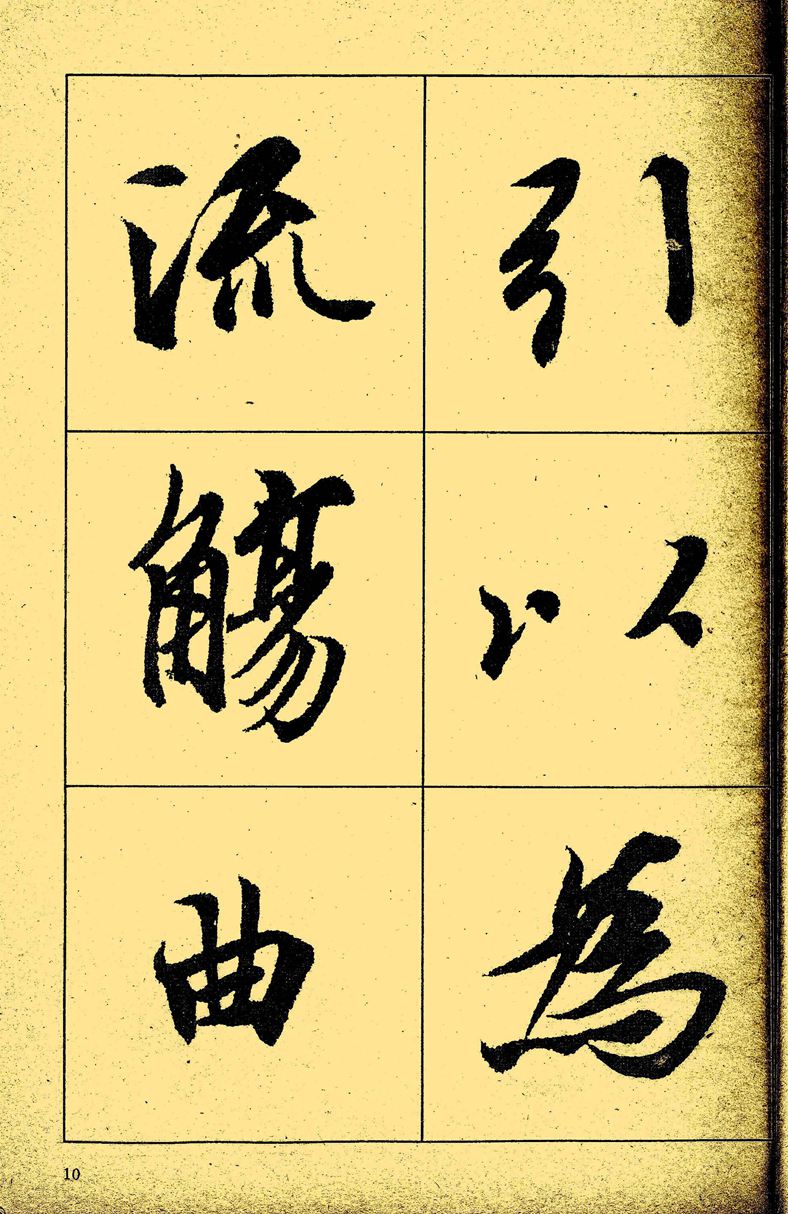 引以為
流觴曲
10